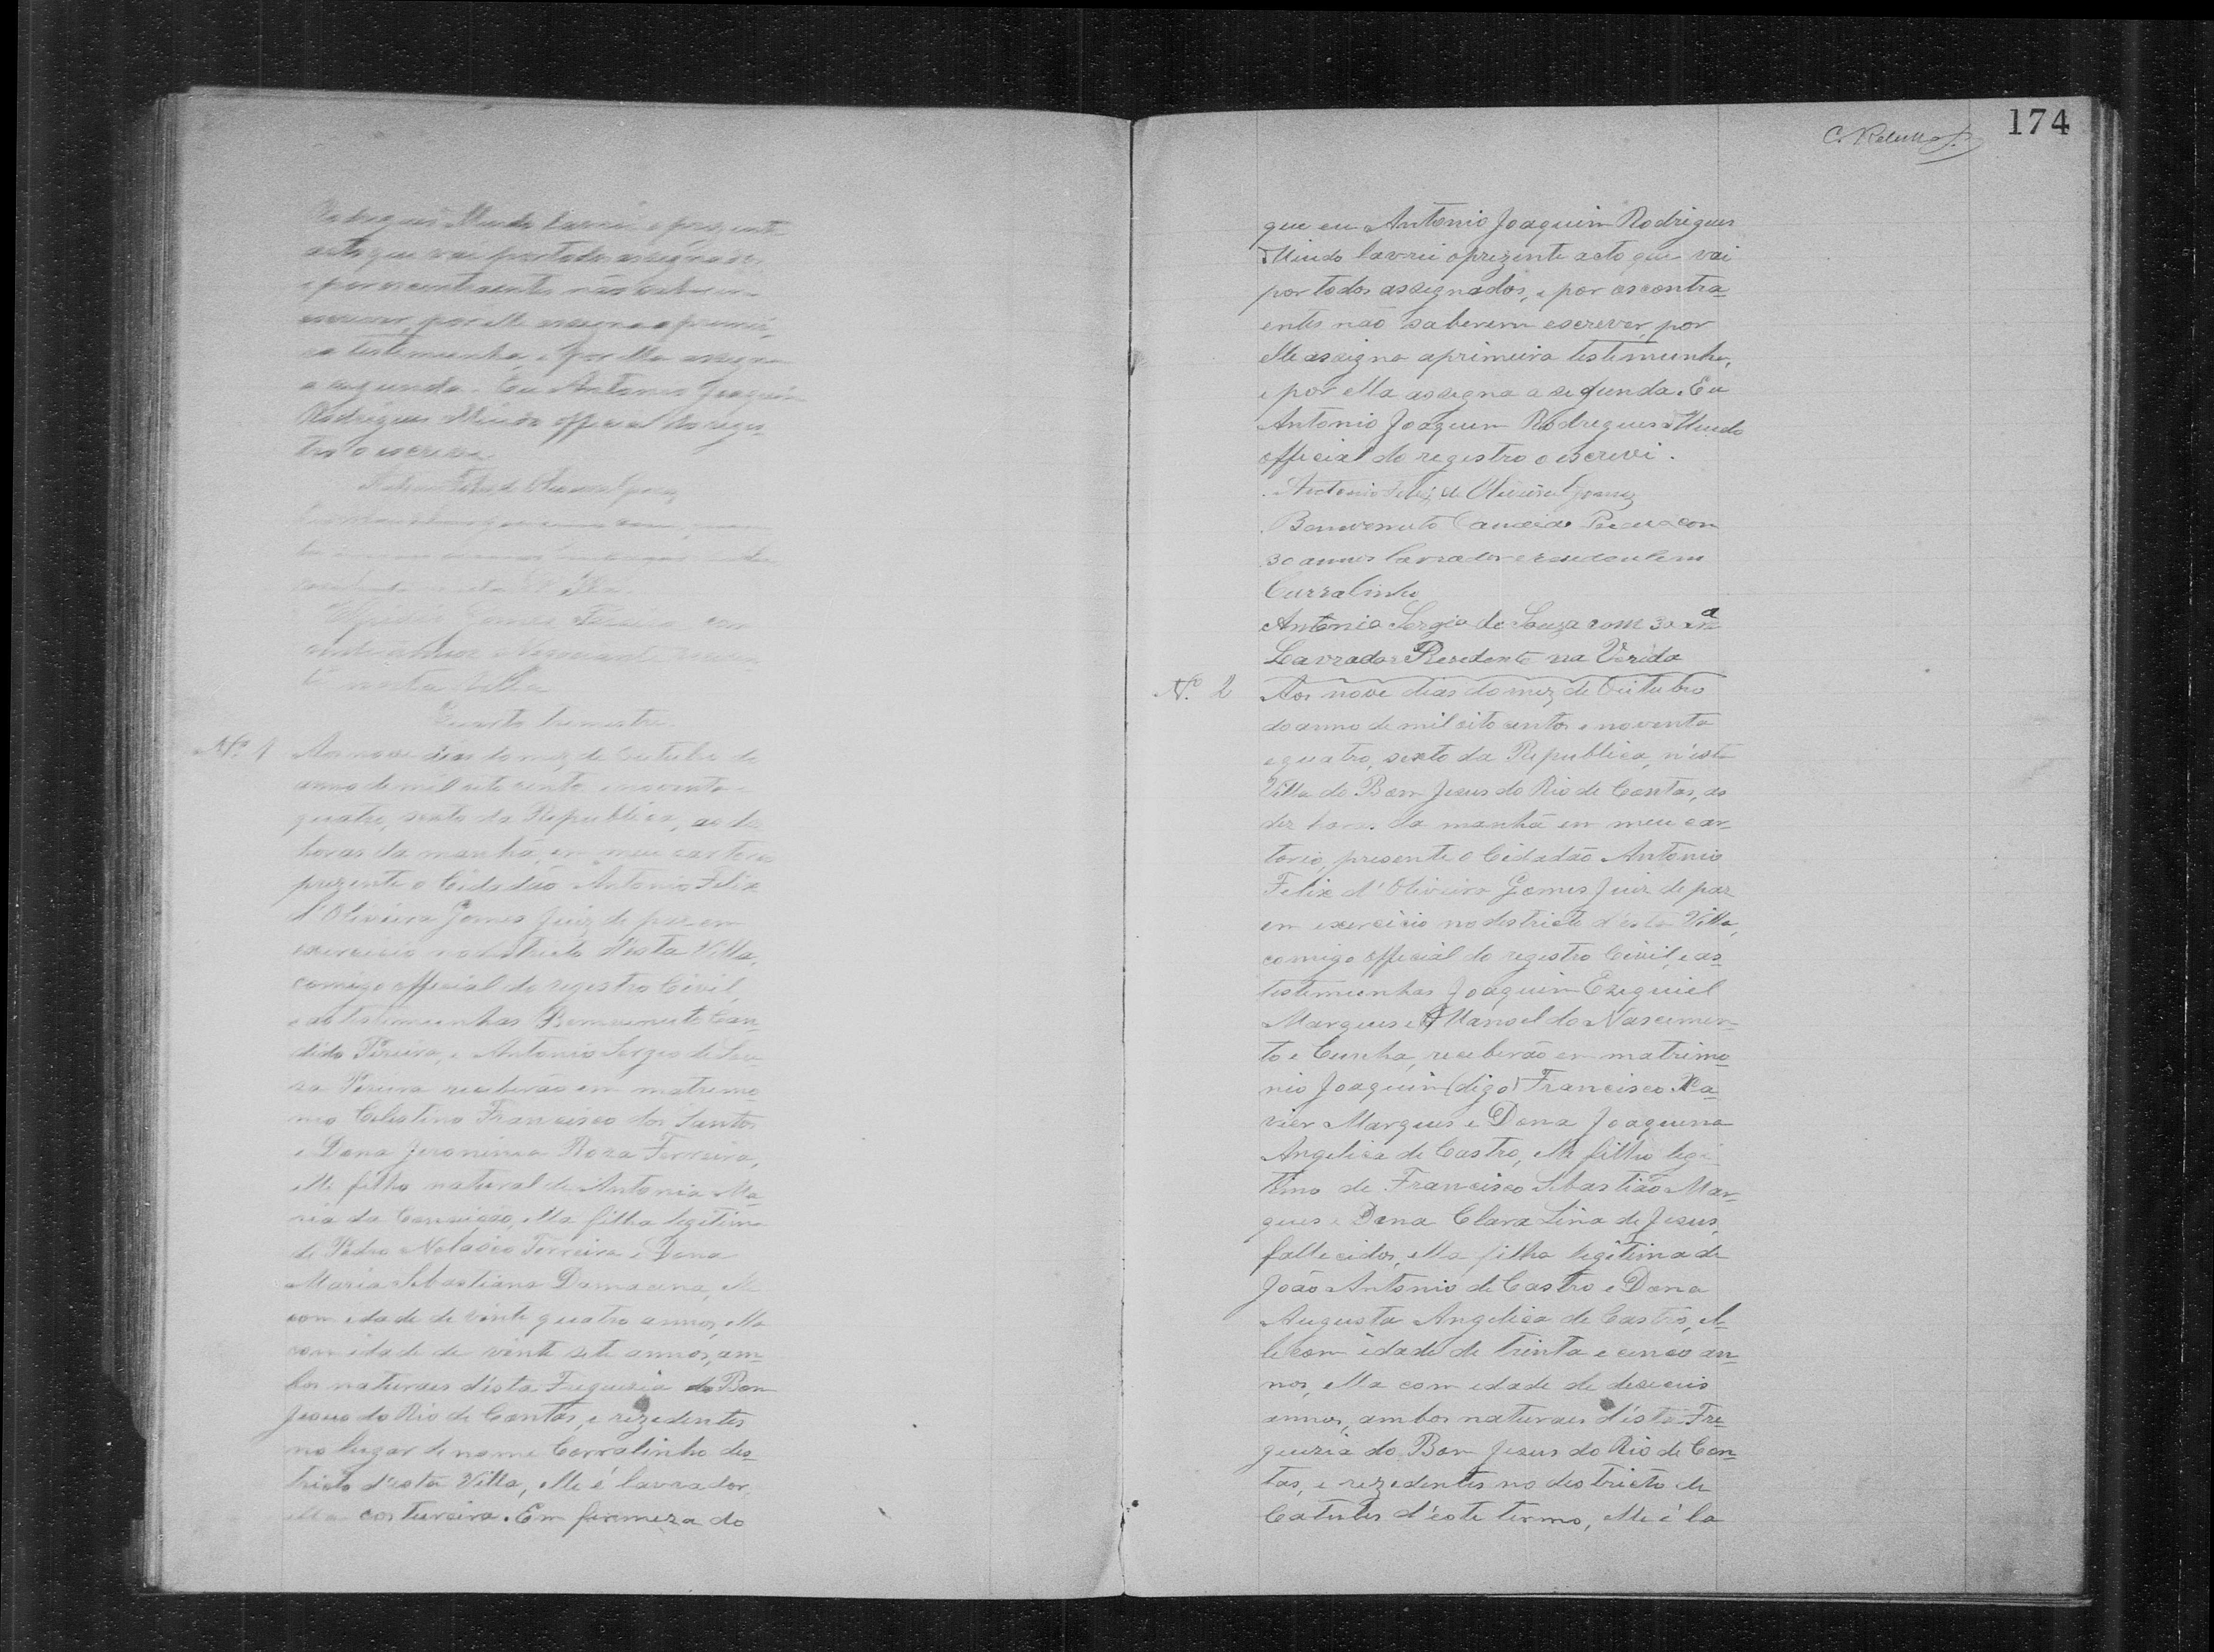 Rodrigues Mundo lavrei o prezente
acto que vai por todos assignados
e por os contraentes não saberem
escrever, por elle assigna a primei-
ra testemunha, e por ella assigna
a segunda. Eu Antonio Joaquim
Rodrigues Mundo official do regis-
tro o escrevi.
Gomes
nesta Villa.
Gomes com
Negociante
nesta Villa
Quarto trimestre.
Nº 1 Aos nove dias do mez de Outubro do
anno de mil oito centos e noventa e
quatro, sexto da Republica, as dez
horas da manhã em meu cartorio
prezente o Cidadão Antonio Felix
d'Oliveira Gomes Juiz de paz em
exercicio no destricto d'esta Villa,
comigo official do registro Civil,
e as testemunhas Bemvenuto Can-
dido Pereira, e Antonio Sergio de Sou-
sa Pereira receberão em matrimo-
nio Celestino Francisco dos Santos
e Dona Jeronima Roza Ferreira,
elle filho natural de Antonia Ma-
ria da Conceição, ella filha legitima
de Pedro Nolasco Ferreira e Dona
Maria Sebastiana Damacena, elle
com idade de vinte quatro annos, ella
com idade de vinte sete annos, am-
bos naturaes d'esta Freguezia do Bom
Jesus do Rio de Contas, e rezedentes
no lugar de nome Corralinho des-
tricto d'esta Villa, elle é lavrador
ella costureira. Em firmeza do
174
que eu Antonio Joaquim Rodrigues
Mundo lavrei o prezente acto que vai
por todos assignados, e por os contra-
entes não saberem escrever, por
elle assigna a primeira testemunha,
e por ella assigna a segunda. Eu
Antonio Joaquim Rodrigues Mundo
official do registro o escrevi.
Antonio Felix de Oliveira Gomes
Bemvenuto Candido Pereira com
30 annos lavrador e residente em
Curralinho
Antonio Sergio de Souza com 30 an
Lavrador Residente na Verêda
Nº 2 Aos nove dias do mez de Outubro
do anno de mil oito centos e noventa
e quatro, sexto da Republica, n'esta
Villa do Bom Jesus do Rio de Contas, as
dez horas da manhã em meu car-
torio, presente o Cidadão Antonio
Felix d'Oliveira Gomes Juiz de paz
em exercicio no destricto d'esta Villa,
comigo official do registro Civil, e as
testemunhas Joaquim Ezequiel
Marques e Manoel do Nascimen-
to e Cunha, receberão em matrimo-
nio Joaquim (digo) Francisco Xa-
vier Marques e Dona Joaquina
Angelica de Castro, elle filho legi-
timo de Francisco Sebastião Mar-
ques e Dona Clara Lina de Jesus,
fallecidos, ella filha legitima de
João Antonio de Castro e Dona
Augusta Angelica de Castro, el-
le com idade de trinta e cinco an-
nos, ella com edade de deseseis
annos, ambos naturaes d'esta Fre-
guezia do Bom Jesus do Rio de Con-
tas, e rezedentes no destricto de
Catules d'éste termo, elle é la